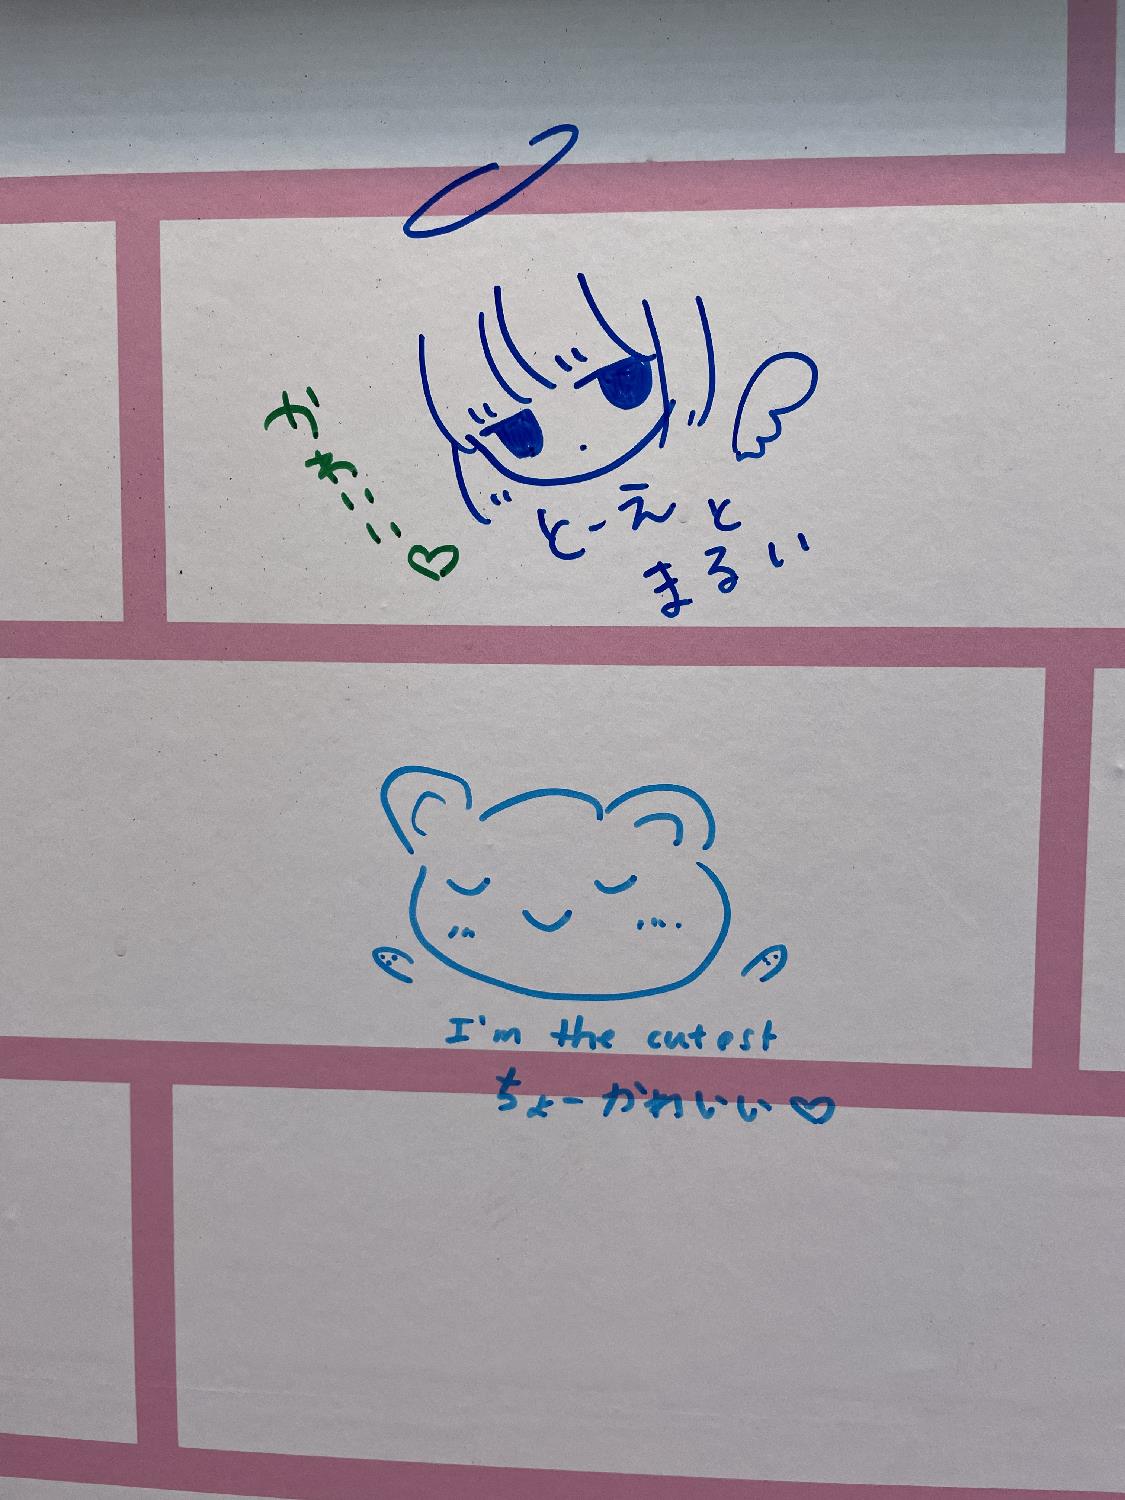 かわいい♡
とーえと
まるい
I'm the cutest
ちょーかわいい♡